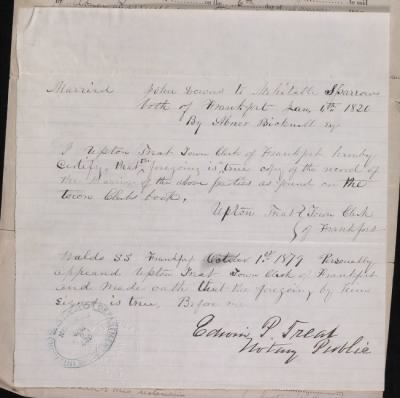 Married John Downs to Mehitable Sparrow
both of Frankfort Jany 6th 1820
By Abner Bicknell Esq
I Upton Treat Town Clerk of Frankfort hereby
Certify, that the foregoing is true copy of the record of
the Marriage of the above parties as found on the
town Clerks book,
Upton Treat Town Clerk
of Frankfort
Waldo SS Frankfort October 1st 1879 Personally
appeared Upton Treat Town Clerk of Frankfort
and made oath that the foregoing by him
signed is true. Before me
Edwin P. Treat
Notary Public